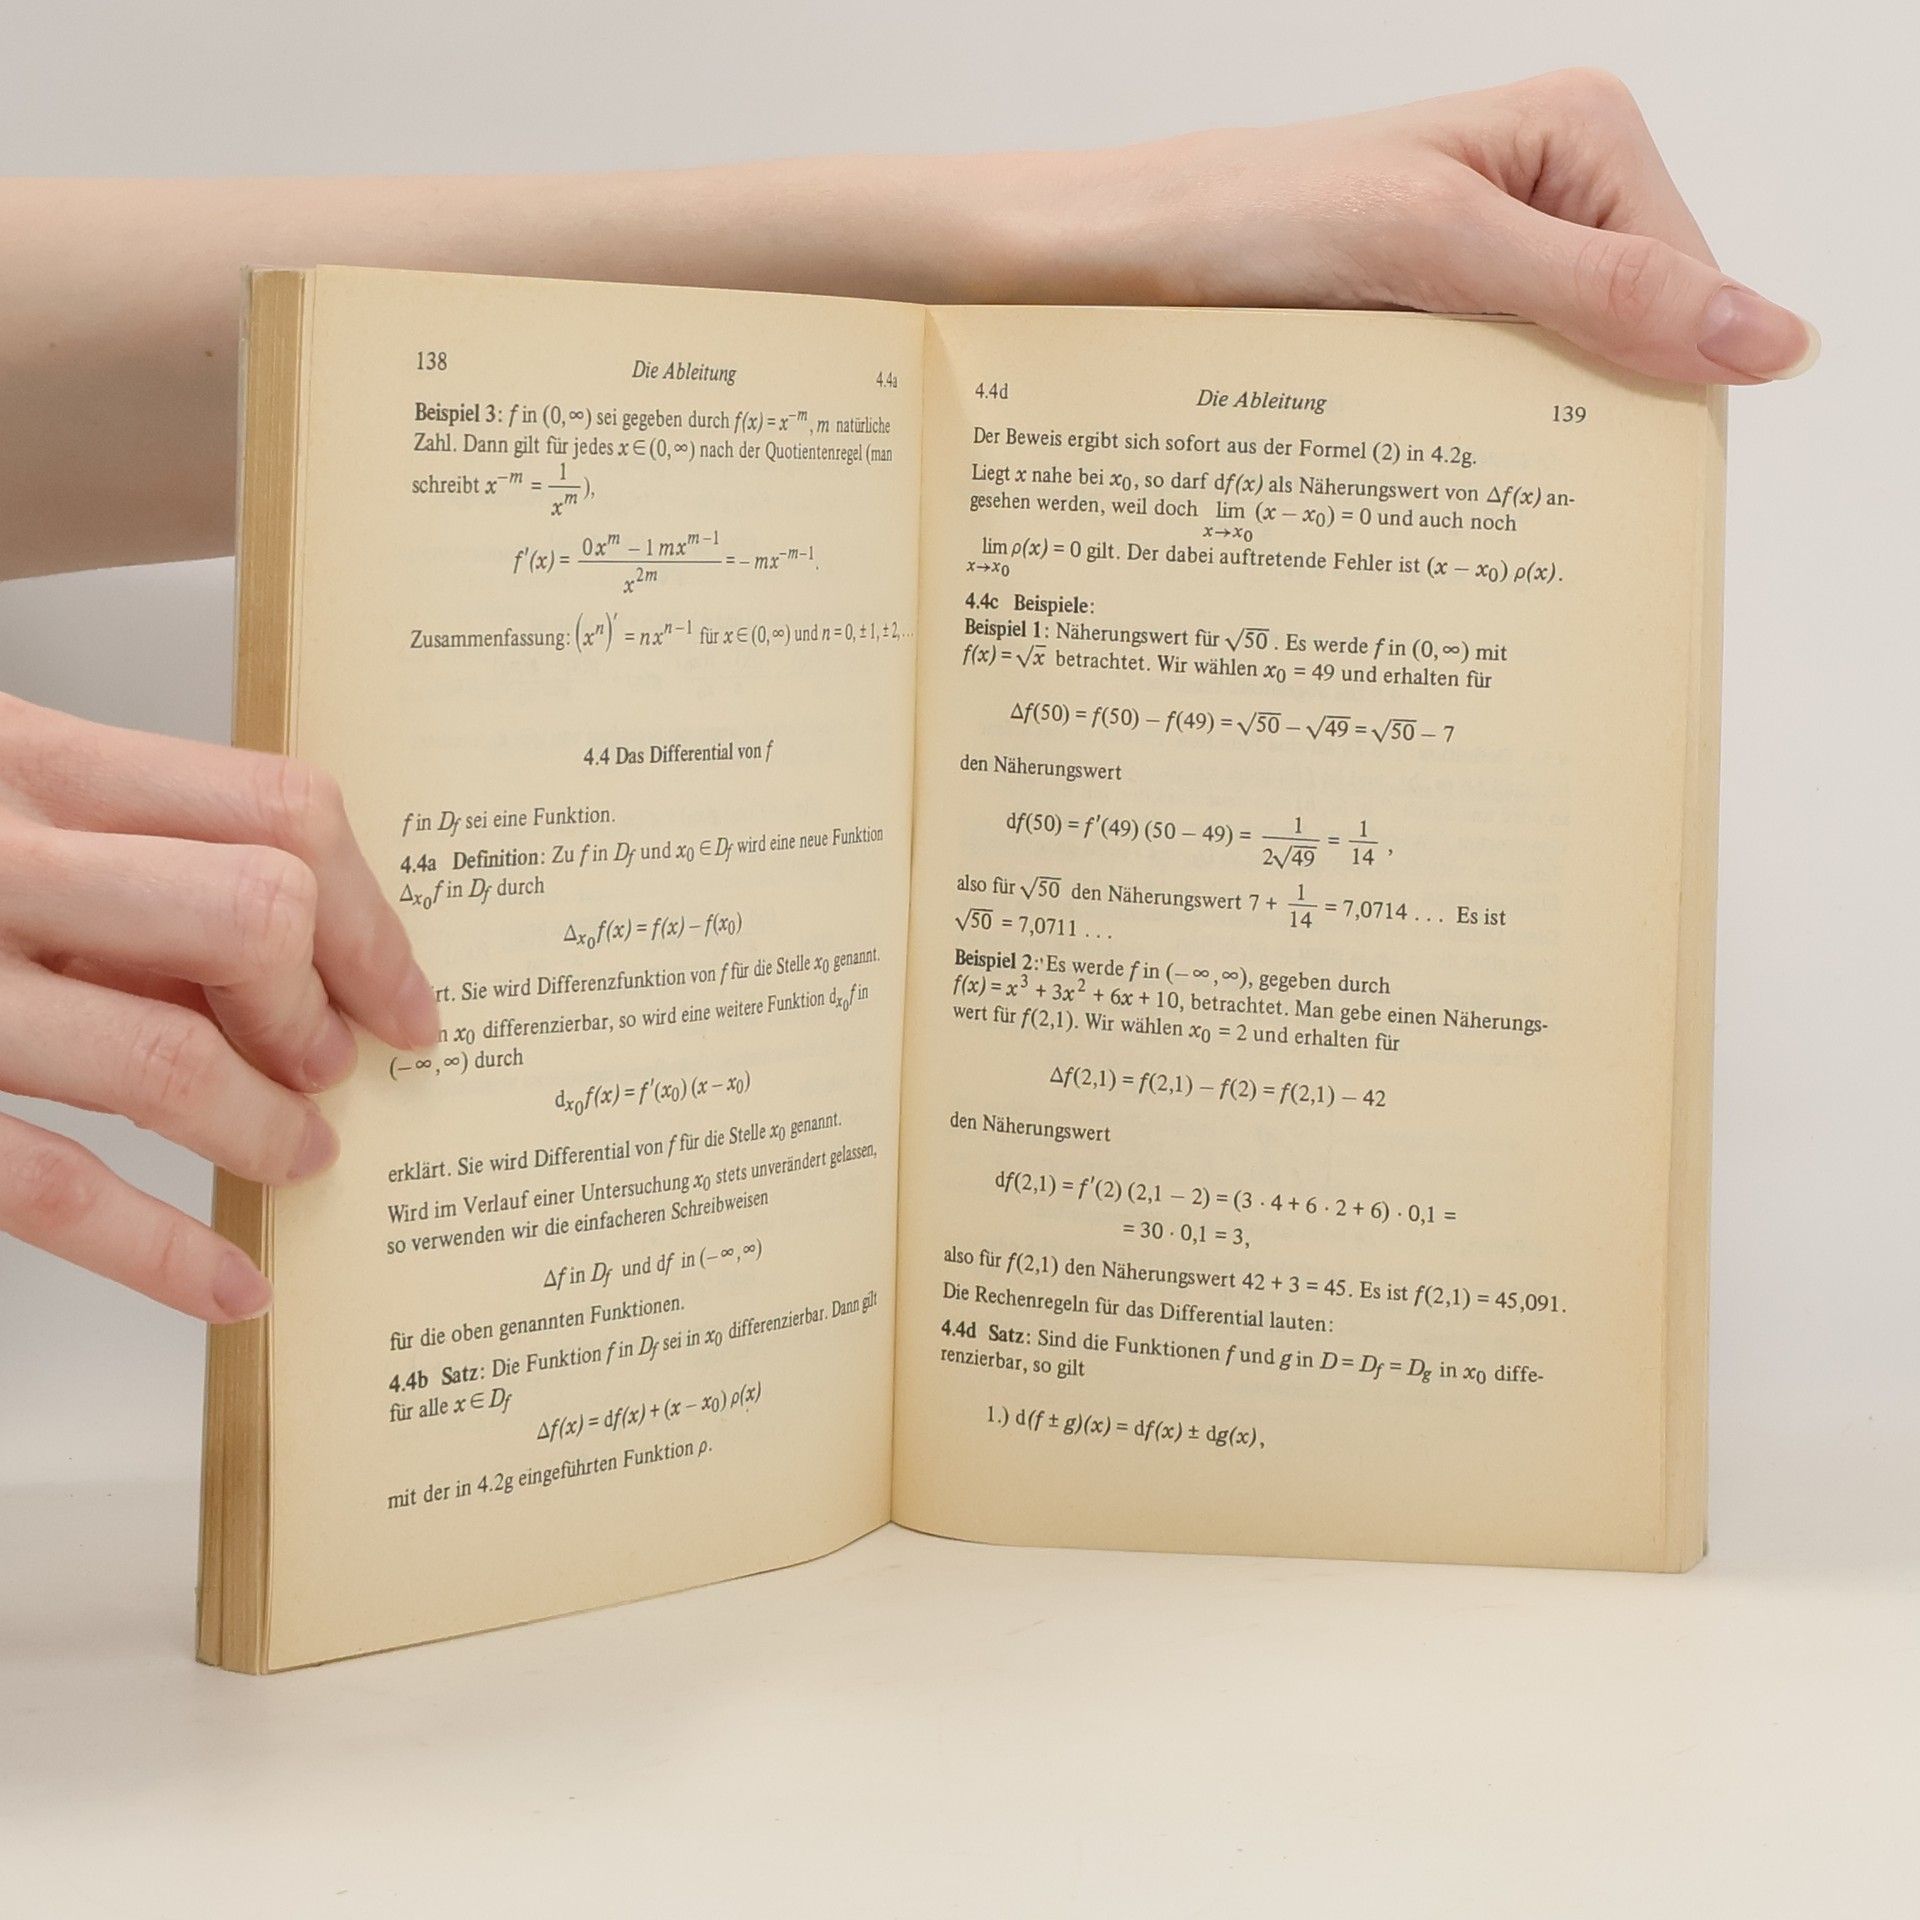 138 Die Ableitung 4.4a
Beispiel 3: f in (0, ∞) sei gegeben durch f(x) = x⁻ᵐ, m natürliche
Zahl. Dann gilt für jedes x ∈ (0, ∞) nach der Quotientenregel (man
schreibt x⁻ᵐ = 1/xᵐ),
f′(x) = (0xᵐ − 1 mxᵐ⁻¹)/x²ᵐ = − mx⁻ᵐ⁻¹.
Zusammenfassung: (xⁿ)′ = nxⁿ⁻¹ für x ∈ (0, ∞) und n = 0, ± 1, ± 2, ...
4.4 Das Differential von f
f in D_f sei eine Funktion.
4.4a Definition: Zu f in D_f und x₀ ∈ D_f wird eine neue Funktion
Δ_x₀ f in D_f durch
Δ_x₀ f(x) = f(x) − f(x₀)
rt. Sie wird Differenzfunktion von f für die Stelle x₀ genannt.
n x₀ differenzierbar, so wird eine weitere Funktion d_x₀ f in
(− ∞, ∞) durch
d_x₀ f(x) = f′(x₀) (x − x₀)
erklärt. Sie wird Differential von f für die Stelle x₀ genannt.
Wird im Verlauf einer Untersuchung x₀ stets unverändert gelassen,
so verwenden wir die einfacheren Schreibweisen
Δf in D_f und df in (− ∞, ∞)
für die oben genannten Funktionen.
4.4b Satz: Die Funktion f in D_f sei in x₀ differenzierbar. Dann gilt
für alle x ∈ D_f
Δf(x) = df(x) + (x − x₀) ρ(x)
mit der in 4.2g eingeführten Funktion ρ.
4.4d Die Ableitung 139
Der Beweis ergibt sich sofort aus der Formel (2) in 4.2g.
Liegt x nahe bei x₀, so darf df(x) als Näherungswert von Δf(x) an-
gesehen werden, weil doch lim x→x₀ (x − x₀) = 0 und auch noch
lim x→x₀ ρ(x) = 0 gilt. Der dabei auftretende Fehler ist (x − x₀) ρ(x).
4.4c Beispiele:
Beispiel 1: Näherungswert für √50 . Es werde f in (0, ∞) mit
f(x) = √x betrachtet. Wir wählen x₀ = 49 und erhalten für
Δf(50) = f(50) − f(49) = √50 − √49 = √50 − 7
den Näherungswert
df(50) = f′(49) (50 − 49) = 1/(2√49) = 1/14 ,
also für √50 den Näherungswert 7 + 1/14 = 7,0714 . . . Es ist
√50 = 7,0711 . . .
Beispiel 2: Es werde f in (− ∞, ∞), gegeben durch
f(x) = x³ + 3x² + 6x + 10, betrachtet. Man gebe einen Näherungs-
wert für f(2,1). Wir wählen x₀ = 2 und erhalten für
Δf(2,1) = f(2,1) − f(2) = f(2,1) − 42
den Näherungswert
df(2,1) = f′(2) (2,1 − 2) = (3 · 4 + 6 · 2 + 6) · 0,1 =
= 30 · 0,1 = 3,
also für f(2,1) den Näherungswert 42 + 3 = 45. Es ist f(2,1) = 45,091.
Die Rechenregeln für das Differential lauten:
4.4d Satz: Sind die Funktionen f und g in D = D_f = D_g in x₀ diffe-
renzierbar, so gilt
1.) d(f ± g)(x) = df(x) ± dg(x),